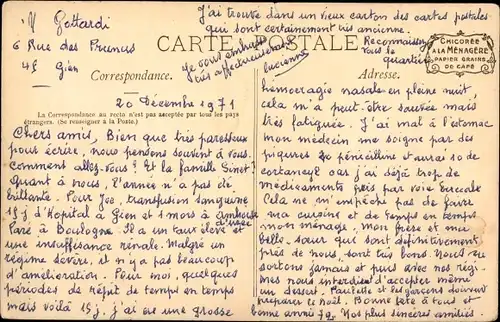 M Gottardi
6 Rue des Prunus
45 Gien
J'ai trouvé dans un vieux carton des cartes postales
qui sont certainement très ancienne.
Reconnaissez
vous le
quartier
CARTE POSTALE
je vous embrasse
très affectueusement
Lucienne
CHICORÉE
A LA MÉNAGÈRE
PAPIER GRAINS
DE CAFÉ
Correspondance.
Adresse.
20 Décembre 1971
La Correspondance au recto n'est pas acceptée par tous les pays
étrangers. (Se renseigner à la Poste.)
Chers amis, Bien que très paresseux
pour écrire, nous pensons souvent à vous.
Comment allez-vous? Et la famille Ginet?
Quant à nous, l'année n'a pas été
brillante. Pour Joe, transfusion sanguine
15 j d'Hopital à Gien et 1 mois à Ambroise
Paré à Boulogne. Il a un taux élevé d'urée et
une insuffisance rénale. Malgré un
régime sévère, il n'y a pas beaucoup
d'amélioration. Pour moi, quelques
périodes de répit de temps en temps
mais voilà 15 j, j'ai eu une grosse
hémorragie nasale en pleine nuit,
cela m'a peut-être sauvée mais
très fatiguée. J'ai mal à l'estomac
mon médecin me soigne par des
piqures de pénicilline et aurai 10 de
cortancyl car j'ai déjà trop de
médicaments pris par voie buccale
Cela ne m'empêche pas de faire
ma cuisine et de temps en temps
mon ménage. Mon frère et ma
belle-sœur qui sont définitivement
près de nous, sont très gentils. Nous ne
sortons jamais et puis avec nos régi-
mes nous interdisent d'accepter même
un dessert. Paulette et les garçons doivent
préparer le Noël. Bonne fête à tous et
bonne année. Nos plus sincères amitiés